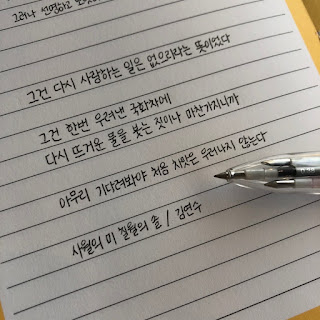 그러나 선명하고
그건 다시 사랑하는 일은 없으리라는 뜻이었다
그건 한번 우려낸 국화차에
다시 뜨거운 물을 붓는 짓이나 마찬가지니까
아무리 기다려봐야 처음 차맛은 우러나지 않는다
사월의 미 칠월의 솔 / 김연수